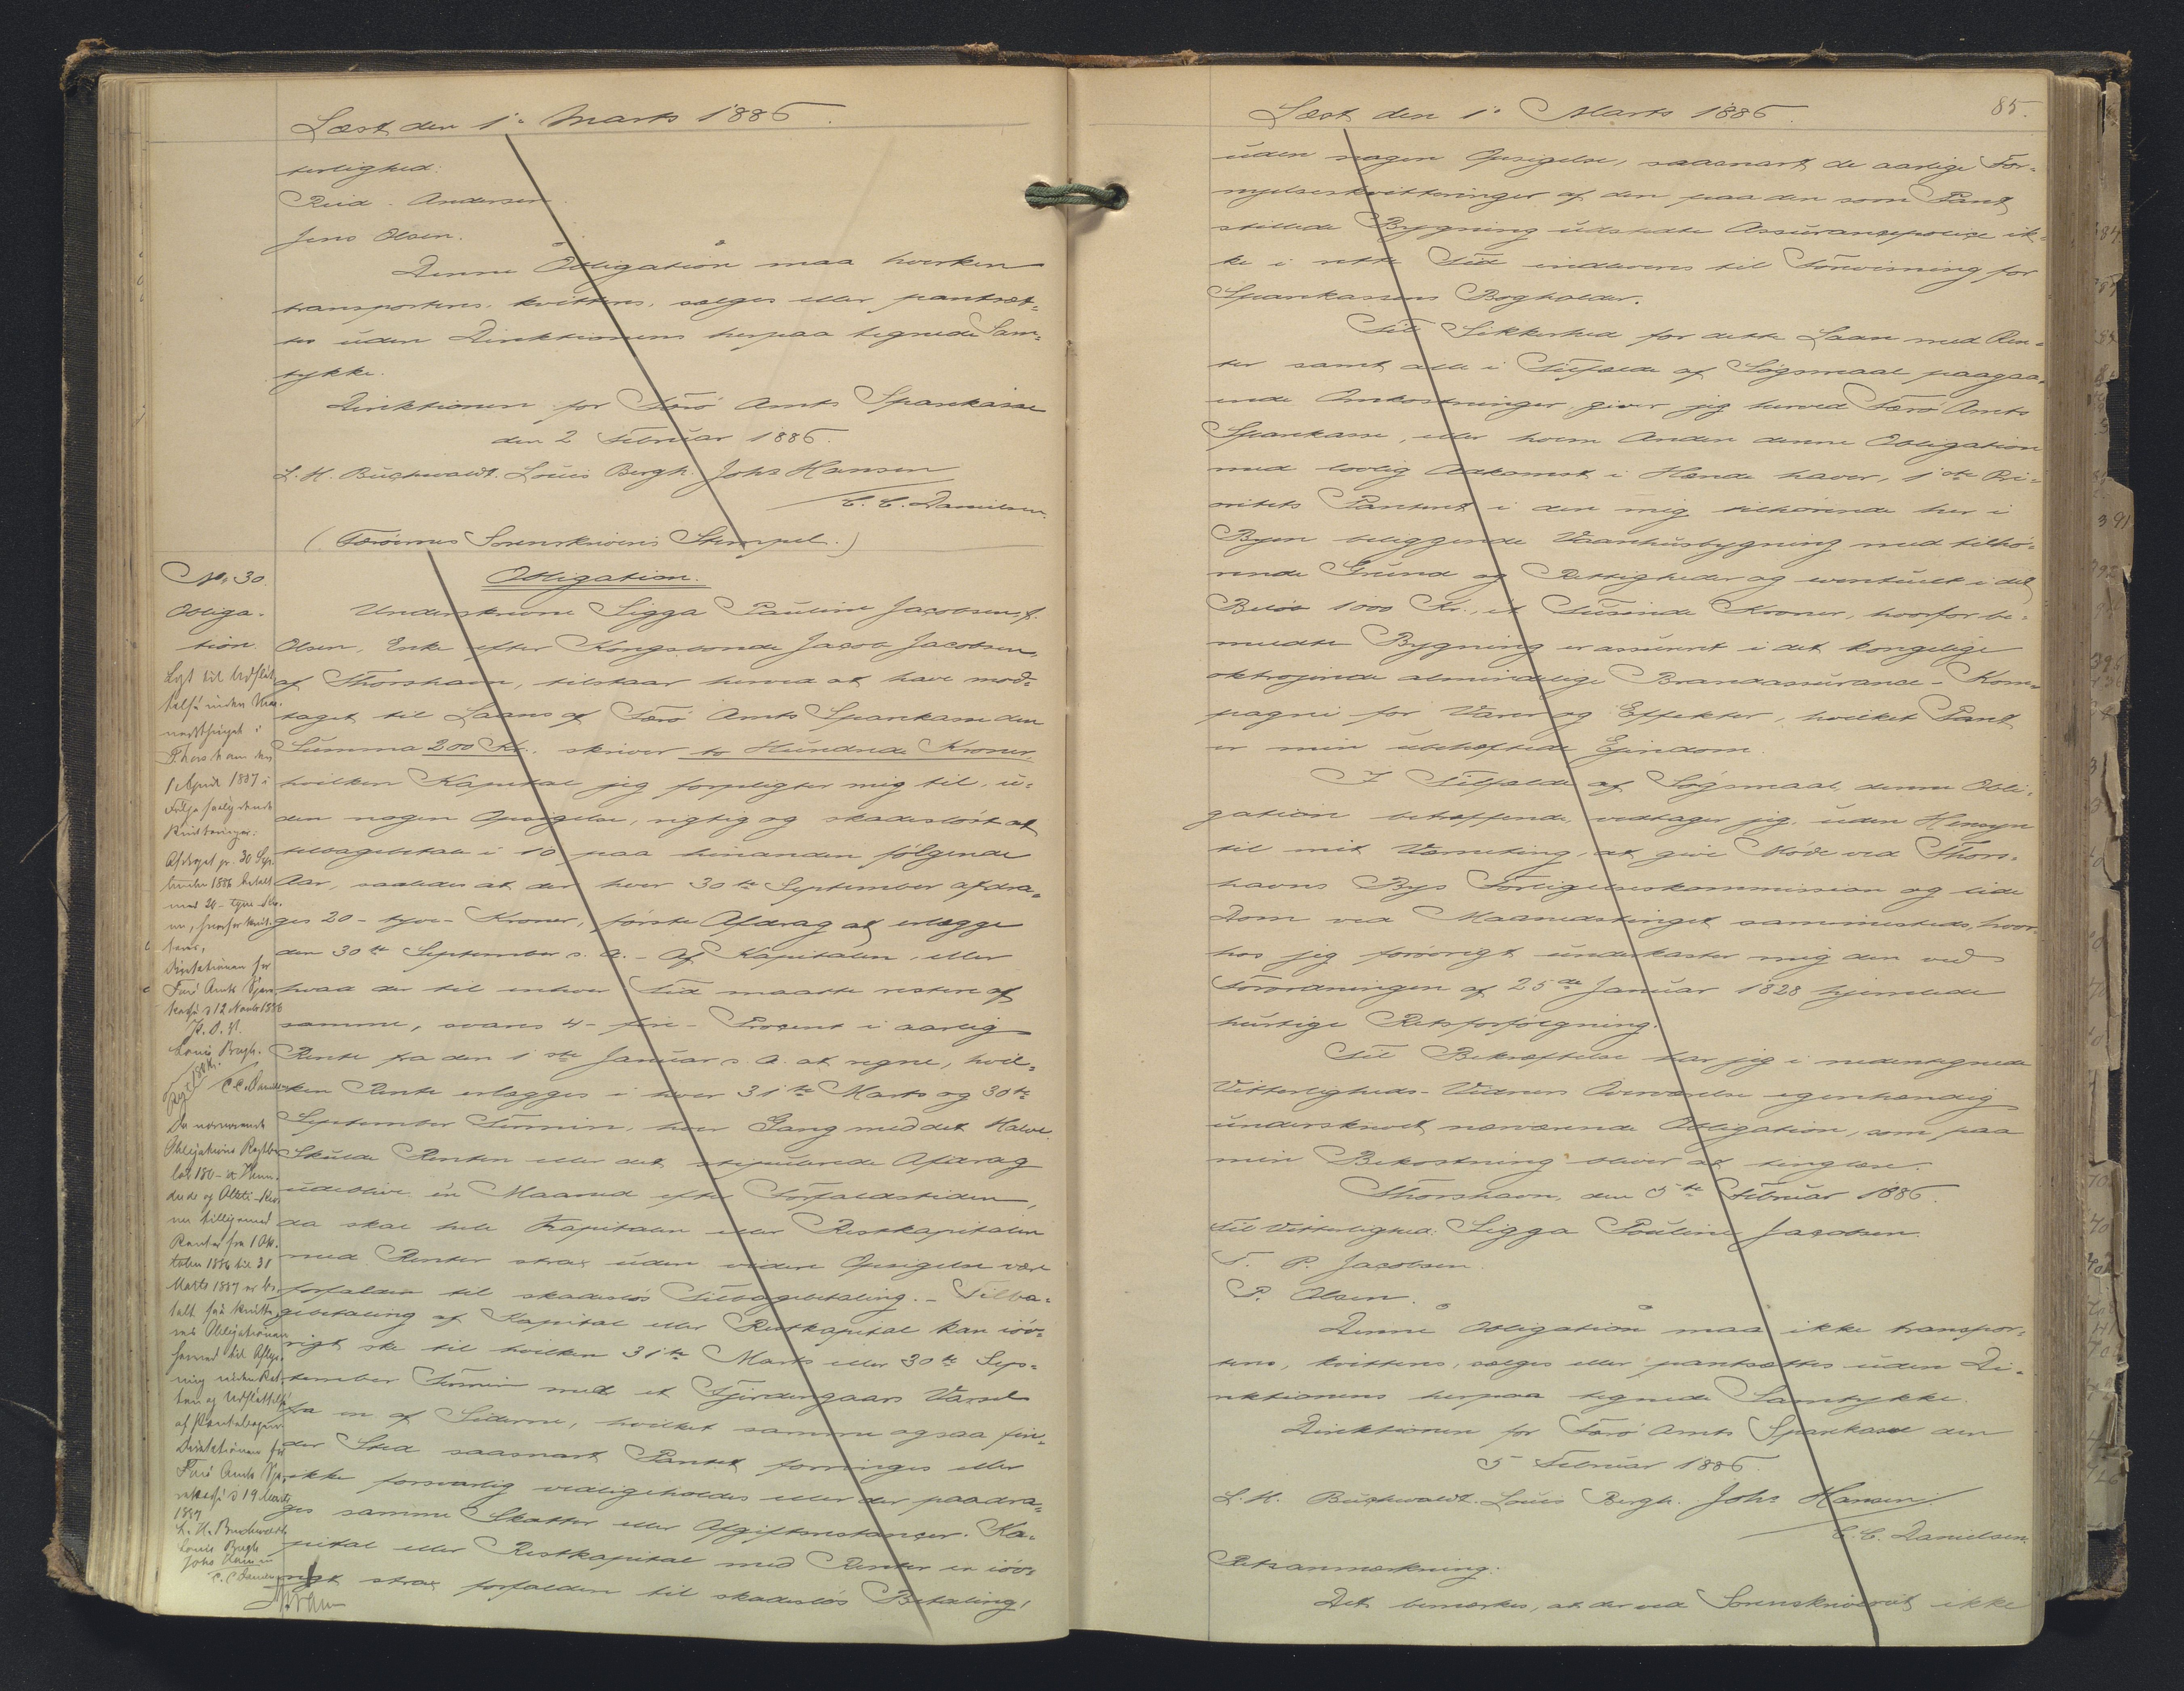 Læst den 1. Marts 1886.
terlighed:
Reid. Andersen.
Jens Olsen.
Denne Obligation maa hverken
transporteres, kvitteres, sælges eller pantsæt-
tes uden Direktionens herpaa tegnede Sam-
tykke.
Direktionen for Færø Amts Sparekasse
den 2 Februar 1886.
L. H. Buchwaldt. Louis Bergh. Johs Hansen
C. C. Danielsen.
(Færøernes Sorenskriveris Stempel.)
No. 30.
Obliga-
tion.
Lyst til Udslet-
telse inden Maa-
nedsthinget i
Thorshavn den
1 April 1887 i
Følge saalydende
Kvitteringer:
Afdraget pr. 30 Sep-
tember 1886 betalt
med 20 - tyve Kro-
ner, hvorfor kvit-
teres.
Direktionen for
Færø Amts Spare-
kasse d 12 Novbr 1886
P. D. V.
Louis Bergh.
C. C. Danielsen
Rest 180 Kr.
Da nærværende
Obligations Restbe-
løb 180 - et Hun-
drede og Otteti - Kro-
ner tilligemed
Renter fra 1 Ok-
tober 1886 til 31
Marts 1887 er be-
talt saa kvitte-
res Obligationen
herved til Aflys-
ning inden Ret-
ten og Udslettelse
af Pantebogen
Direktionen for
Færø Amts Spa-
rekasse d 19 Marts
1887
L. H. Buchwaldt
Louis Bergh
Johs Hansen
C. C. Danielsen
Obligation.
Underskrevne Sigga Pauline Jacobsen, f.
Olsen, Enke efter Kongsbonde Jacob Jacobsen,
af Thorshavn, tilstaar herved at have mod-
taget til Laans af Færø Amts Sparekasse den
Summa 200 Kr. skriver to Hundrede Kroner,
hvilken Kapital jeg forpligter mig til, u-
den nogen Opsigelse, rigtig og skadesløst at
tilbagebetale i 10 paa hinanden følgende
Aar, saaledes at der hver 30te September afdra-
ges 20 - tyve - Kroner, første Afdrag at erlægge
den 30te September s. A. - Af Kapitalen, eller
hvad der til enhver Tid maatte restere af
samme, svares 4 - fire - Procent i aarlig
Rente fra den 1ste Januar s. A. at regne, hvil-
ken Rente erlægges i hver 31te Marts og 30te
September Termin, hver Gang med det Halve.
Skulde Renten eller det stipulerede Afdrag
udeblive én Maaned efter Forfaldstiden,
da skal hele Kapitalen eller Restkapitalen
med Renter strax uden videre Opsigelse være
forfalden til skadesløs Tilbagebetaling. - Tilba-
gebetaling af Kapital eller Restkapital kan iøv-
rigt ske til hvilken 31te Marts eller 30te Sep-
tember Termin med et Fjerdingaars Varsel
fra en af Siderne, hvilket samme ogsaa fin-
der Sted saasnart Pantet forringes eller
ikke forsvarlig vedligeholdes eller der paadra-
ges samme Skatter eller Afgiftsrestancer. Ka-
pital eller Restkapital med Renter er iøv-
rigt strax forfalden til skadesløs Betaling,
Læst den 1. Marts 1886.
85.
uden nogen Opsigelse, saasnart de aarlige For-
nyelseskvitteringer af den paa den som Pant
stillede Bygning udstedte Assurancepolice ik-
ke i rette Tid indleveres til Forevisning for
Sparekassens Bogholder.
Til Sikkerhed for dette Laan med Ren-
ter samt alle i Tilfælde af Søgsmaal paagaa-
ende Omkostninger giver jeg herved Færø Amts
Sparekasse, eller hvem Anden denne Obligation
med lovlig Adkomst i Hænde haver, 1ste Pri-
oritets Panteret i den mig tilhørende her i
Byen beliggende Vaanhusbygning med tilhø-
rende Grund og Rettigheder og eventuelt i det
Beløb 1000 Kr., et Tusinde Kroner, hvorfor be-
meldte Bygning er assureret i det kongelige
oktrojerede almindelige Brandassurance-Kom-
pagni for Varer og Effekter, hvilket Pant
er min ubehæftede Ejendom.
I Tilfælde af Søgsmaal, denne Obli-
gation betræffende, vedtager jeg, uden Hensyn
til mit Værneting, at give Møde ved Thors-
havns Bys Forligelseskommission og lide
Dom ved Maanedstinget sammesteds, hvor-
hos jeg forøvrigt underkaster mig den ved
Forordningen af 25de Januar 1828 hjemlede
hurtige Retsforfølgning.
Til Bekræftelse har jeg i nedentegnede
Vitterligheds-Vidners Overværelse egenhændig
underskrevet nærværende Obligation, som paa
min Bekostning bliver at tinglæse.
Thorshavn, den 5te Februar 1886.
Til Vitterlighed: Sigga Pauline Jacobsen.
T. P. Jacobsen.
P. Olsen.
Denne Obligation maa ikke transpor-
teres, kvitteres, sælges eller pantsættes uden Di-
rektionens herpaa tegnede Samtykke.
Direktionen for Færø Amts Sparekasse den
5 Februar 1886.
L. H. Buchwaldt. Louis Bergh. Johs Hansen.
C. C. Danielsen.
Retsanmærkning:
Det bemærkes, at der ved Sorenskriveriet ikke